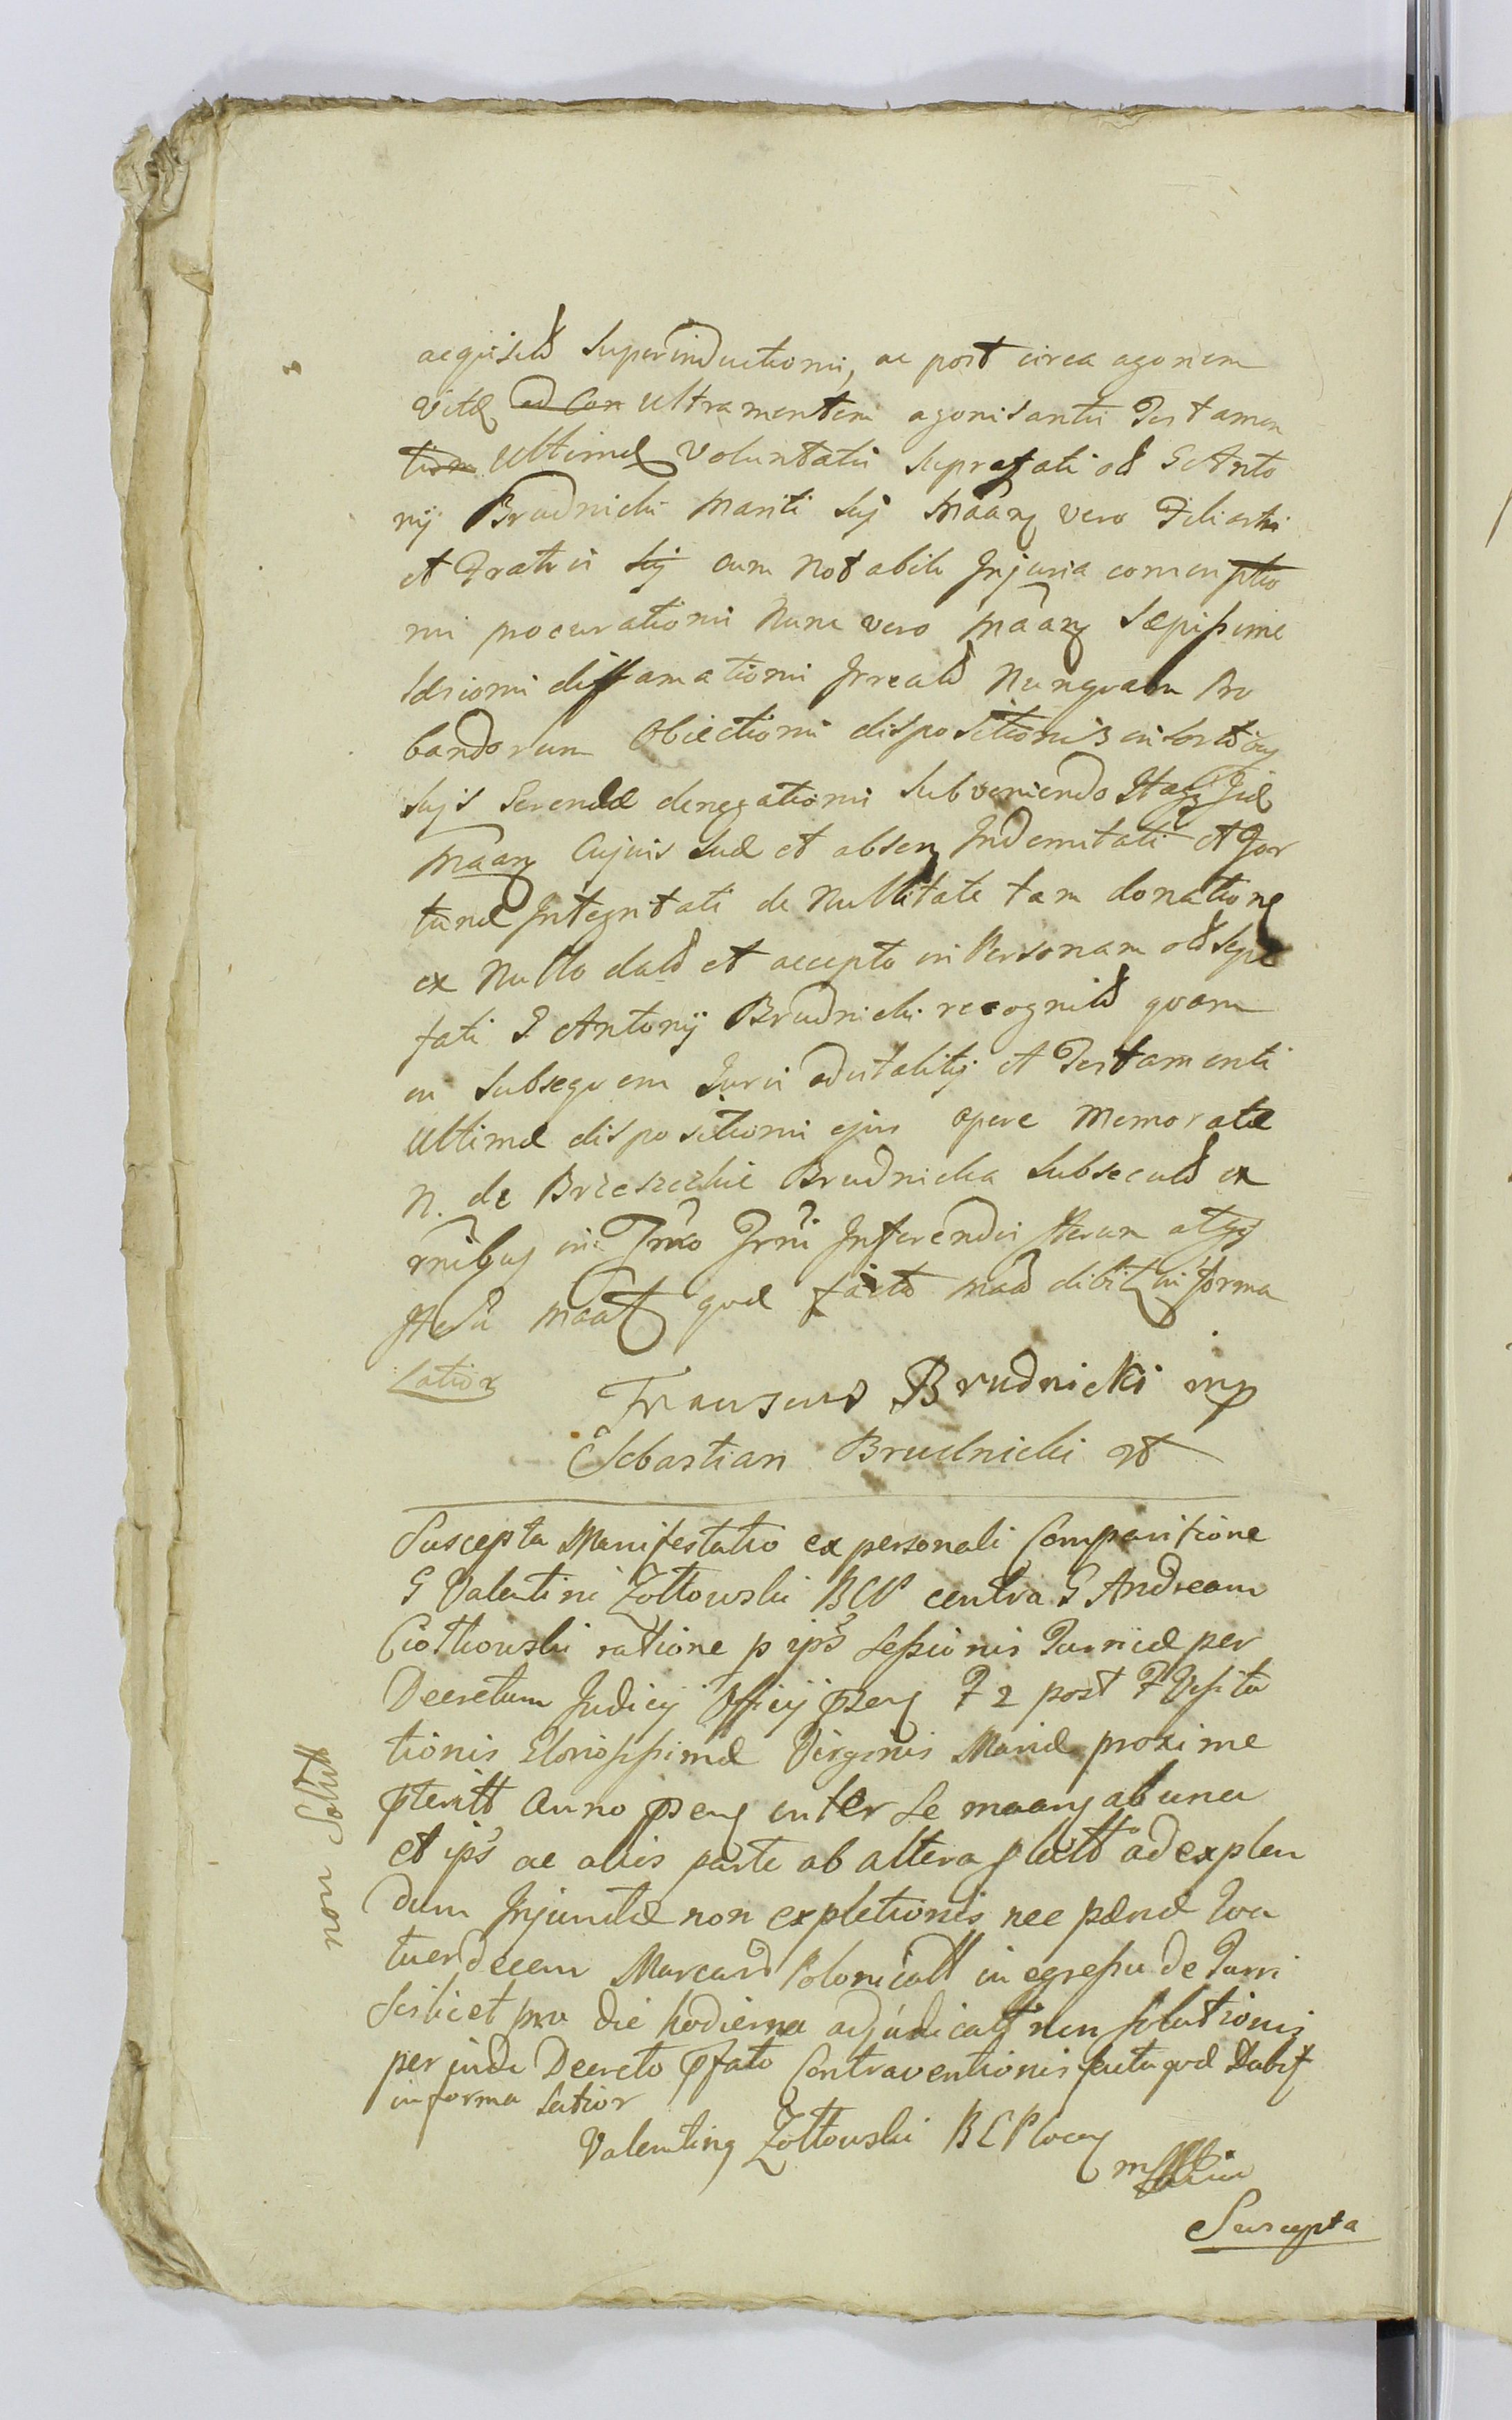 acquisit Superinductionis, ac post circa agoniem
Vitæ ad Con Ultramentem agonisantis Testamen
tium Ultimæ Voluntatis Suprafati olt G Anto
nij Brudnicki Mariti Suj Maanq vero Filiastri
et Fratris Suj cum Notabili Injuria
procurationis Nunc vero maanq Sæpissime
diffamationis Irrealt Nunquam Pro
bandorum Obiectionis dispositionis in sortibq
Sujs Serendæ denegationis Subveniendo Itaq Jid
Maanq Cujuis Suæ et absenq Indemnitati et For
tunæ Integritati de Nullitate tam donationq
ex Nullo dato et accepto in Personam olt Sepe
fati G Antonij Brudnicki recognit quam
in Subsequem Juris advitalitij et Testamenti
Ultimæ dispositionis ejus opere Memoratæ
N. de Brzeszczkie Brudnicka Subsecut ex
rnibq in Trmo Trni Inferendis Iterum atqz
Itero maat quæ facto maat dibit in forma
Latior
Brudnicki mp
Sebastian Brudnicki
Suscepta Manifestatio ex personali Comparitione
G Valentini Zołtowski BCP contra G Andream
Ciołkowski ratione p ips Sessionis Turricæ per
Decretum Judicij Officij pseng F 2 post F Visita
tionis Gloriosissimæ Virginis Mariæ proxime
pteritt Anno pseng inter Se maanq ab una
et ips ac aliis parte ab altera platt ad explen
dum Injunctæ non expletionis nec pænæ Qva
tuordecem Marcard Polonicall in egressu de Turri
Scilicet pro die hodierna adjudicatt non Solutionis
perinde Decreto pfato Contraventionis facta quæ Dabit
in forma Latior
non Solutt
Valentinq Zołtowski BCPlocq
Suscepta